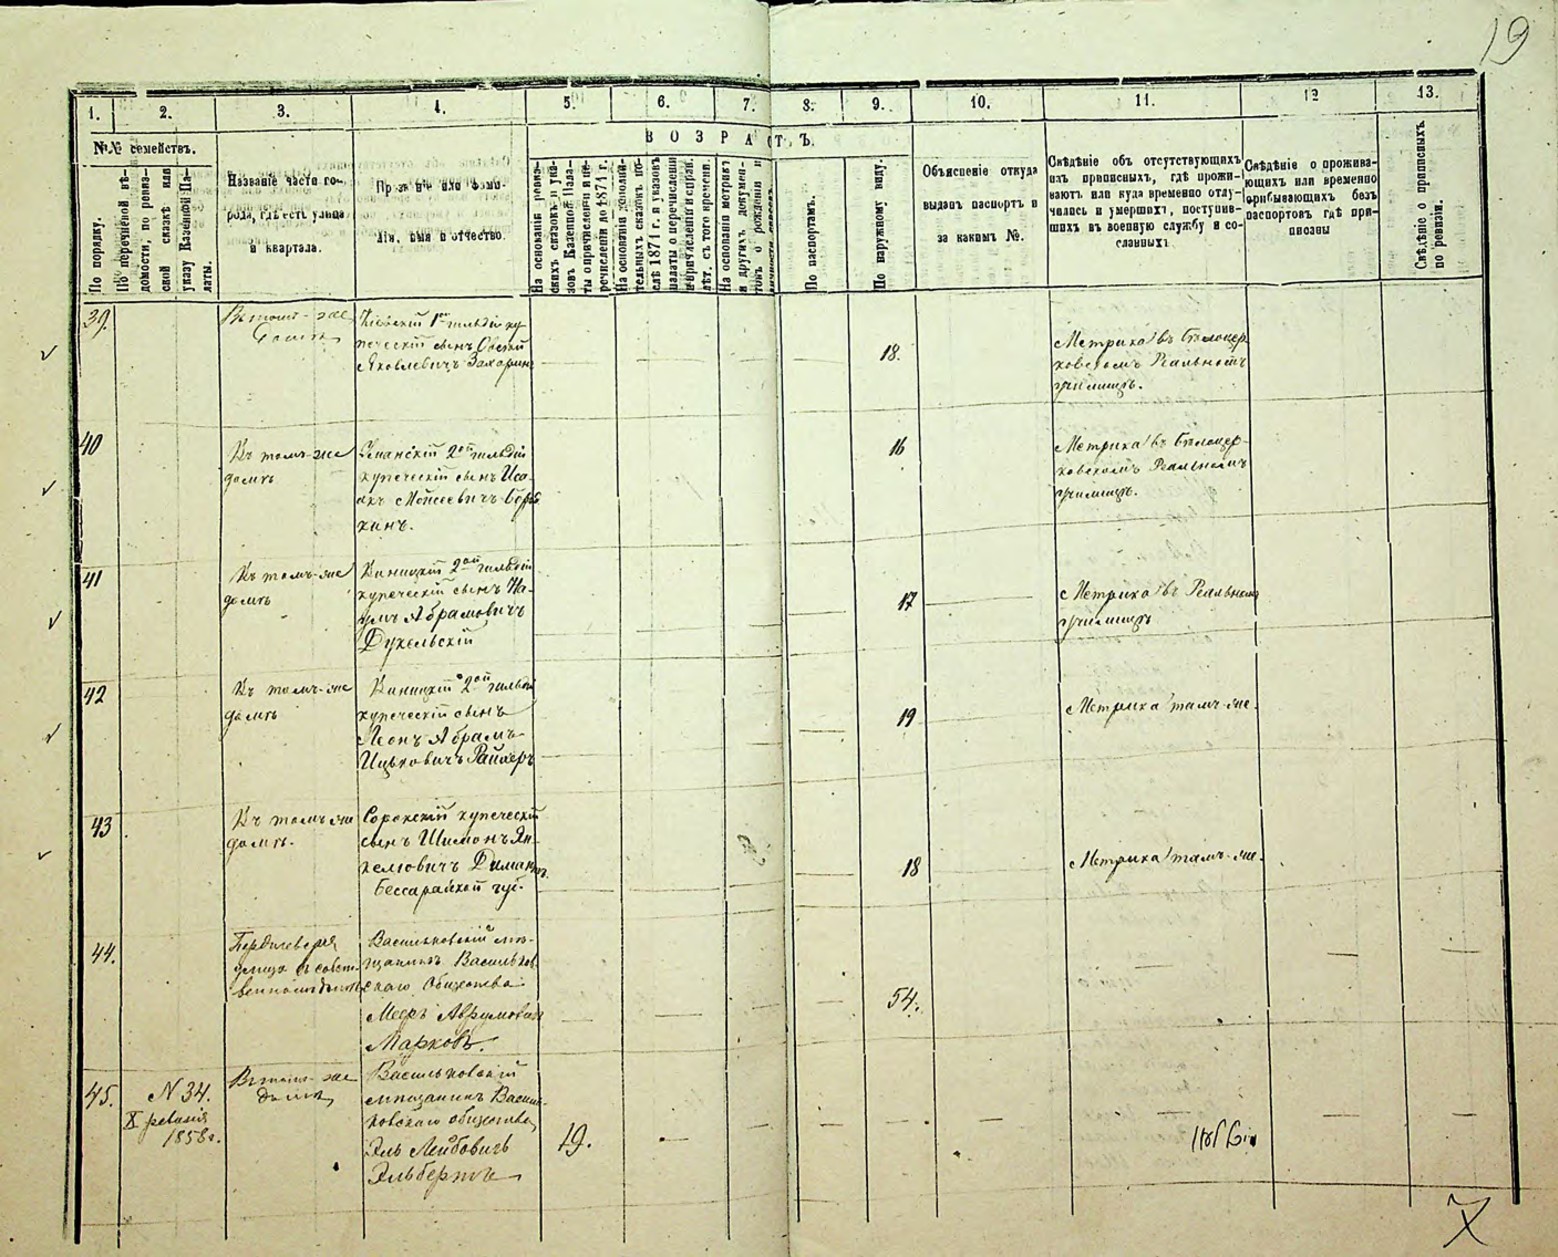 19
1.
2.
3.
4.
5.
6.
7.
8.
9.
10.
11.
12
13.
№№ семействъ.
По порядку.
По перечневой вѣ-
домости, по ревиз-
ской сказкѣ или
указу Казенной Па-
латы.
Названіе части го-
рода, гдѣ есть улица
и квартала.
Прозваніе или фами-
лія, имя и отчество.
ВОЗРАСТЪ.
На основаніи ревиз-
скихъ сказокъ и ука-
зовъ Казенной Пала-
ты о причисленіи и пе-
речисленіи до 1871 г.
На основаніи дополни-
тельныхъ сказокъ по-
слѣ 1871 г. и указовъ
палаты о перечисленіи
и причисленіи и справ.
лѣт. съ того времени.
На основаніи метрикъ
и другихъ докумен-
товъ о рожденіи и
По паспортамъ.
По наружному виду.
Объясненіе откуда
выданъ паспортъ и
за какимъ №.
Свѣдѣніе объ отсутствующихъ
ихъ приписныхъ, гдѣ прожи-
ваютъ или куда временно отлу-
чились и умершихъ, поступив-
шихъ въ военную службу и со-
сланныхъ
Свѣдѣніе о прожива-
ющихъ или временно
пребывающихъ безъ
паспортовъ гдѣ при-
писаны
Свѣдѣніе о приписныхъ
по ревизіи.
39.
Въ томъ-же
домѣ
Кіевскій 1ой гильдіи ку-
печескій сынъ Овсей
Яковлевичъ Захаринъ
18.
Метрика въ Бѣлоцер
ковскомъ Реальномъ
училищѣ.
40
Въ томъ-же
домѣ
Уманскій 2ой гильдіи
купеческій сынъ Иса-
акъ Мойсеевичъ
16
Метрика въ Бѣлоцер-
ковскомъ Реальномъ
училищѣ.
41
Въ томъ-же
домѣ
2ой гильдіи
купеческій сынъ На-
умъ Абрамовичъ
Дукельскій
17
Метрика въ Реальномъ
училищѣ
42
Въ томъ-же
домѣ
2ой гильдіи
купеческій сынъ
Леонъ Абрамъ-
Ицьковичъ Райхеръ
19
Метрика тамъ-же.
43
Въ томъ же
домѣ.
Сорокскій купеческій
сынъ Шимонъ Ян-
келіовичъ Димантъ
Бессарабской губ.
18
Метрика тамъ-же.
44.
Бердичевская
улица въ собст-
венномъ домѣ
Васильковскій мѣ-
щанинъ Васильков
скаго Общества
Мееръ Аврумовичъ
Марковъ.
54.
45.
N 34.
X ревизія
1858 г.
Въ томъ-же
домѣ
Васильковскій
мѣщанинъ Василь-
ковскаго общества
Эль Лейбовичъ
Эльбертъ
19.